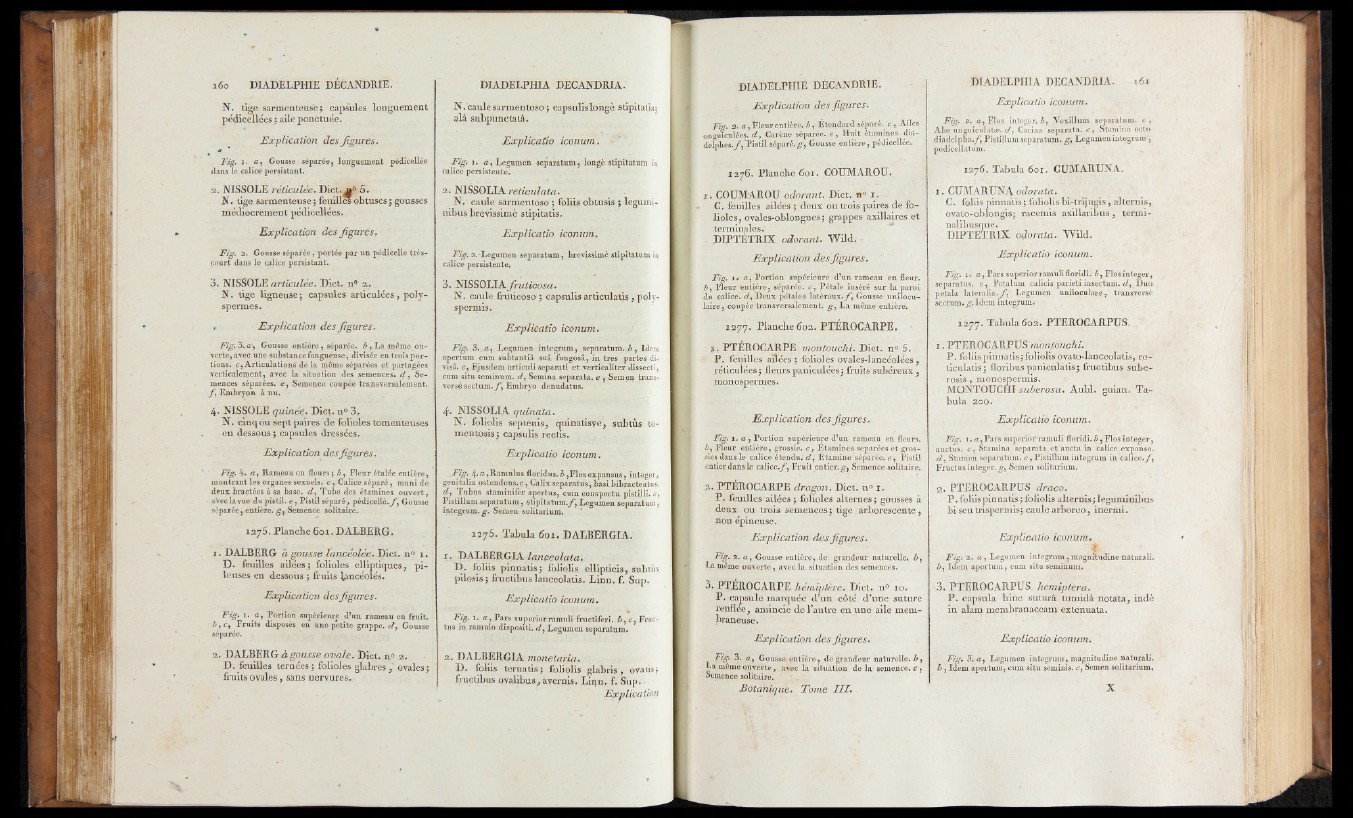 160 DIADELPHIE DÉCANDRIE.
N. tige sarmenteuse; capsules longuement
pédicellées; aile ponctuée.
Explication des figures.
Fig. 1. a, Gousse séparée, longuement pédicellée
dans le calice persistant.
2. NISSOLE réticulée. Dict. nº 5.
N. tige sarmenteuse; feuilles obtuses; gousses
médiocrement pédicellées.
Explication des figures.
Fig. 2. Gousse séparée, portée par un pédicelle très-
court dans le calice persistant.
3. NISSOLE articulée. Dict. nº 2.
N. tige ligneuse; capsules articulées, poly-
spermes.
Explication des figures.
Fig. 3. a, Gousse entière, séparée. b, La même ou-
verte, avec une substance fongueuse, divisée en trois por-
tions. c, Articulations de la même séparées et partagées
verticalement, avec la situation des semences. d, Se-
mences séparées. e, Semence coupée transversalement.
f, Embryon à nu.
4. NISSOLE quinée. Dict. nº 3.
N. cinq ou sept paires de folioles tomenteuses
en dessous; capsules dressées.
Explication des figures.
Fig. 4. a, Rameau en fleurs; b, Fleur étalée entière,
montrant les organes sexuels. c, Calice séparé, muni de
deux bractées à sa base. d, Tube des étamines ouvert,
avec la vue du pistil. e, Pistil séparé, pédicellé. f, Gousse
séparée, entière. g, Semence solitaire.
1275. Planche 601. DALBERG.
1. DALBERG à gousse lancéolée. Dict. nº 1.
D. feuilles ailées; folioles elliptiques, pi-
leuses en dessous; fruits lancéolés.
Explication des figures.
Fig. 1. a, Portion supérieure d'un rameau en fruit.
b, c, Fruits disposés en une petite grappe. d, Gousse
séparée.
2. DALBERG à gousse ovale. Dict. nº 2.
D. feuilles ternées; folioles glabres, ovales;
fruits ovales, sans nervures.
DIADELPHIA DECANDRIA.
N. caule sarmentoso; capsulis longè stipitatis;
alâ subpunctatâ.
Explicatio iconum.
Fig. 1. a, Legumen separatum, longè stipitatum in
calice persistente.
2. NISSOLIA reticulata.
N. caule sarmentoso; foliis obtusis; legumi-
nibus brevissimè stipitatis.
Explicatio iconum.
Fig. 2. Legumen separatum, brevissimè stipitatum in
calice persistente.
3. NISSOLIA fruticosa.
N. caule fruticoso; capsulis articulatis, poly-
spermis.
Explicatio iconum.
Fig. 3. a, Legumen integrum, separatum. b, Idem
apertum cum substantiâ suâ fungosâ, in tres partes di-
visâ. c, Ejusdem articuli separati et verticaliter dissecti,
cum situ seminum. d, Semina separata. e, Semen trans-
versè sectum. f, Embryo denudatus.
4. NISSOLIA quinata.
N. foliolis septenis, quinatisve, subtùs to-
mentosis; capsulis rectis.
Explicatio iconum.
Fig. 4. a, Ramulus floridus. b, Flos expansus, integer,
genitalia ostendens. c, Calix separatus, basi bibracteatus.
d, Tubus staminifer apertus, cum conspectu pistilli. e,
Pistillum separatum, stipitatum. f, Legumen separatum,
integrum. g. Semen solitarium.
1275. Tabula 601. DALBERGIA.
1. DALBERGIA lanceolata.
D. foliis pinnatis; foliolis ellipticis, subtùs
pilosis; fructibus lanceolatis. Linn. f. Sup.
Explicatio iconum.
Fig. 1. a, Pars superior ramuli fructiferi. b, c, Fruc-
tus in ramulo dispositi. d, Legumen separatum.
2. DALBERGIA monetaria.
D. foliis ternatis; foliolis glabris, ovatis;
fructibus ovalibus, avernis. Linn. f. Sup.
Explication
DIADELPHIE DÉCANDRIE.
Explication des figures.
Fig. 2. a, Fleur entière. b, Étendard séparé. c, Ailes
onguiculées. d, Carène séparée. e, Huit étamines dia-
delphes. f, Pistil séparé. g, Gousse entière, pédicellée.
1276. Planche 601. COUMAROU.
1. COUMAROU odorant. Dict. nº 1.
C. feuilles ailées; deux ou trois paires de fo-
lioles, ovales-oblongues; grappes axillaires et
terminales.
DIPTETRIX odorant. Wild.
Explication des figures.
Fig. 1. a, Portion supérieure d'un rameau en fleur.
b, Fleur entière, séparée. c, Pétale inséré sur la paroi
du calice. d, Deux pétales latéraux. f, Gousse unilocu-
laire, coupée transversalement. g, La même entière.
1277. Planche 602. PTÉROCARPE.
1. PTÉROCARPE montouchi. Dict. nº 5.
P. feuilles ailées; folioles ovales-lancéolées,
réticulées; fleurs paniculées; fruits subéreux,
monospermes.
Explication des figures.
Fig. 1. a, Portion supérieure d'un rameau en fleurs.
b, Fleur entière, grossie. c, Étamines séparées et gros-
sies dans le calice étendu. d, Étamine séparée. e, Pistil
entier dans le calice. f, Fruit entier. g, Semence solitaire.
2. PTÉROCARPE dragon. Dict. nº 1.
P. feuilles ailées; folioles alternes; gousses à
deux ou trois semences; tige arborescente,
non épineuse.
Explication des figures.
Fig. 2. a, Gousse entière, de grandeur naturelle. b,
La même ouverte, avec la situation des semences.
3. PTÉROCARPE hémiptère. Dict. nº 10.
P. capsule marquée d'un côté d'une suture
renflée, amincie de l'autre en une aile mem-
braneuse.
Explication des figures.
Fig. 3. a, Gousse entière, de grandeur naturelle. b,
La même ouverte, avec la situation de la semence. c,
Semence solitaire.
Botanique. Tome III.
DIADELPHIA DECANDRIA. 161
Explicatio iconum.
Fig. 2. a, Flos integer. b, Vexillum separatum. c,
Alæ unguiculatæ. d, Carina separata. e, Stamina octo
diadelpha. f, Pistillum separatum. g, Legumen integrum;
pedicellatum.
1276. Tabula 601. CUMARUNA.
1. CUMARUNA odorata.
C. foliis pinnatis; foliolis bi-trijugis, alternis,
ovato-oblongis; racemis axillaribus, termi-
nalibusque.
DIPTETRIX odorata. Wild.
Explicatio iconum.
Fig. 1. a, Pars superior ramuli floridi. b, Flos integer,
separatus. c, Petalum calicis parieti insertum. d, Duo
petala lateralia. f, Legumen uniloculare, transversè
sectum. g. Idem integrum.
1277. Tabula 602. PTEROCARPUS.
1. PTEROCARPUS montouchi.
P. foliis pinnatis; foliolis ovato-lanceolatis, re-
ticulatis; floribus paniculatis; fructibus sube-
rosis, monospermis.
MONTOUCHI suberosa. Aubl. guian. Ta-
bula 200.
Explicatio iconum.
Fig. 1. a, Pars superior ramuli floridi. b, Flos integer,
auctus. c, Stamina separata et aucta in calice expanso.
d, Stamen separatum. e, Pistillum integrum in calice. f,
Fructus integer. g, Semen solitarium.
2. PTEROCARPUS draco.
P. foliis pinnatis; foliolis alternis; leguminibus
bi seu trispermis; caule arboreo, inermi.
Explicatio iconum.
Fig. 2. a, Legumen integrum, magnitudine naturali.
b, Idem apertum, cum situ seminum.
3. PTEROCARPUS hemiptera.
P. capsula hinc suturâ tumidâ notata, indè
in alam membranaceam extenuata.
Explicatio iconum.
Fig. 3. a, Legumen integrum, magnitudine naturali.
b, Idem apertum, cum situ seminis. c, Semen solitarium.
X